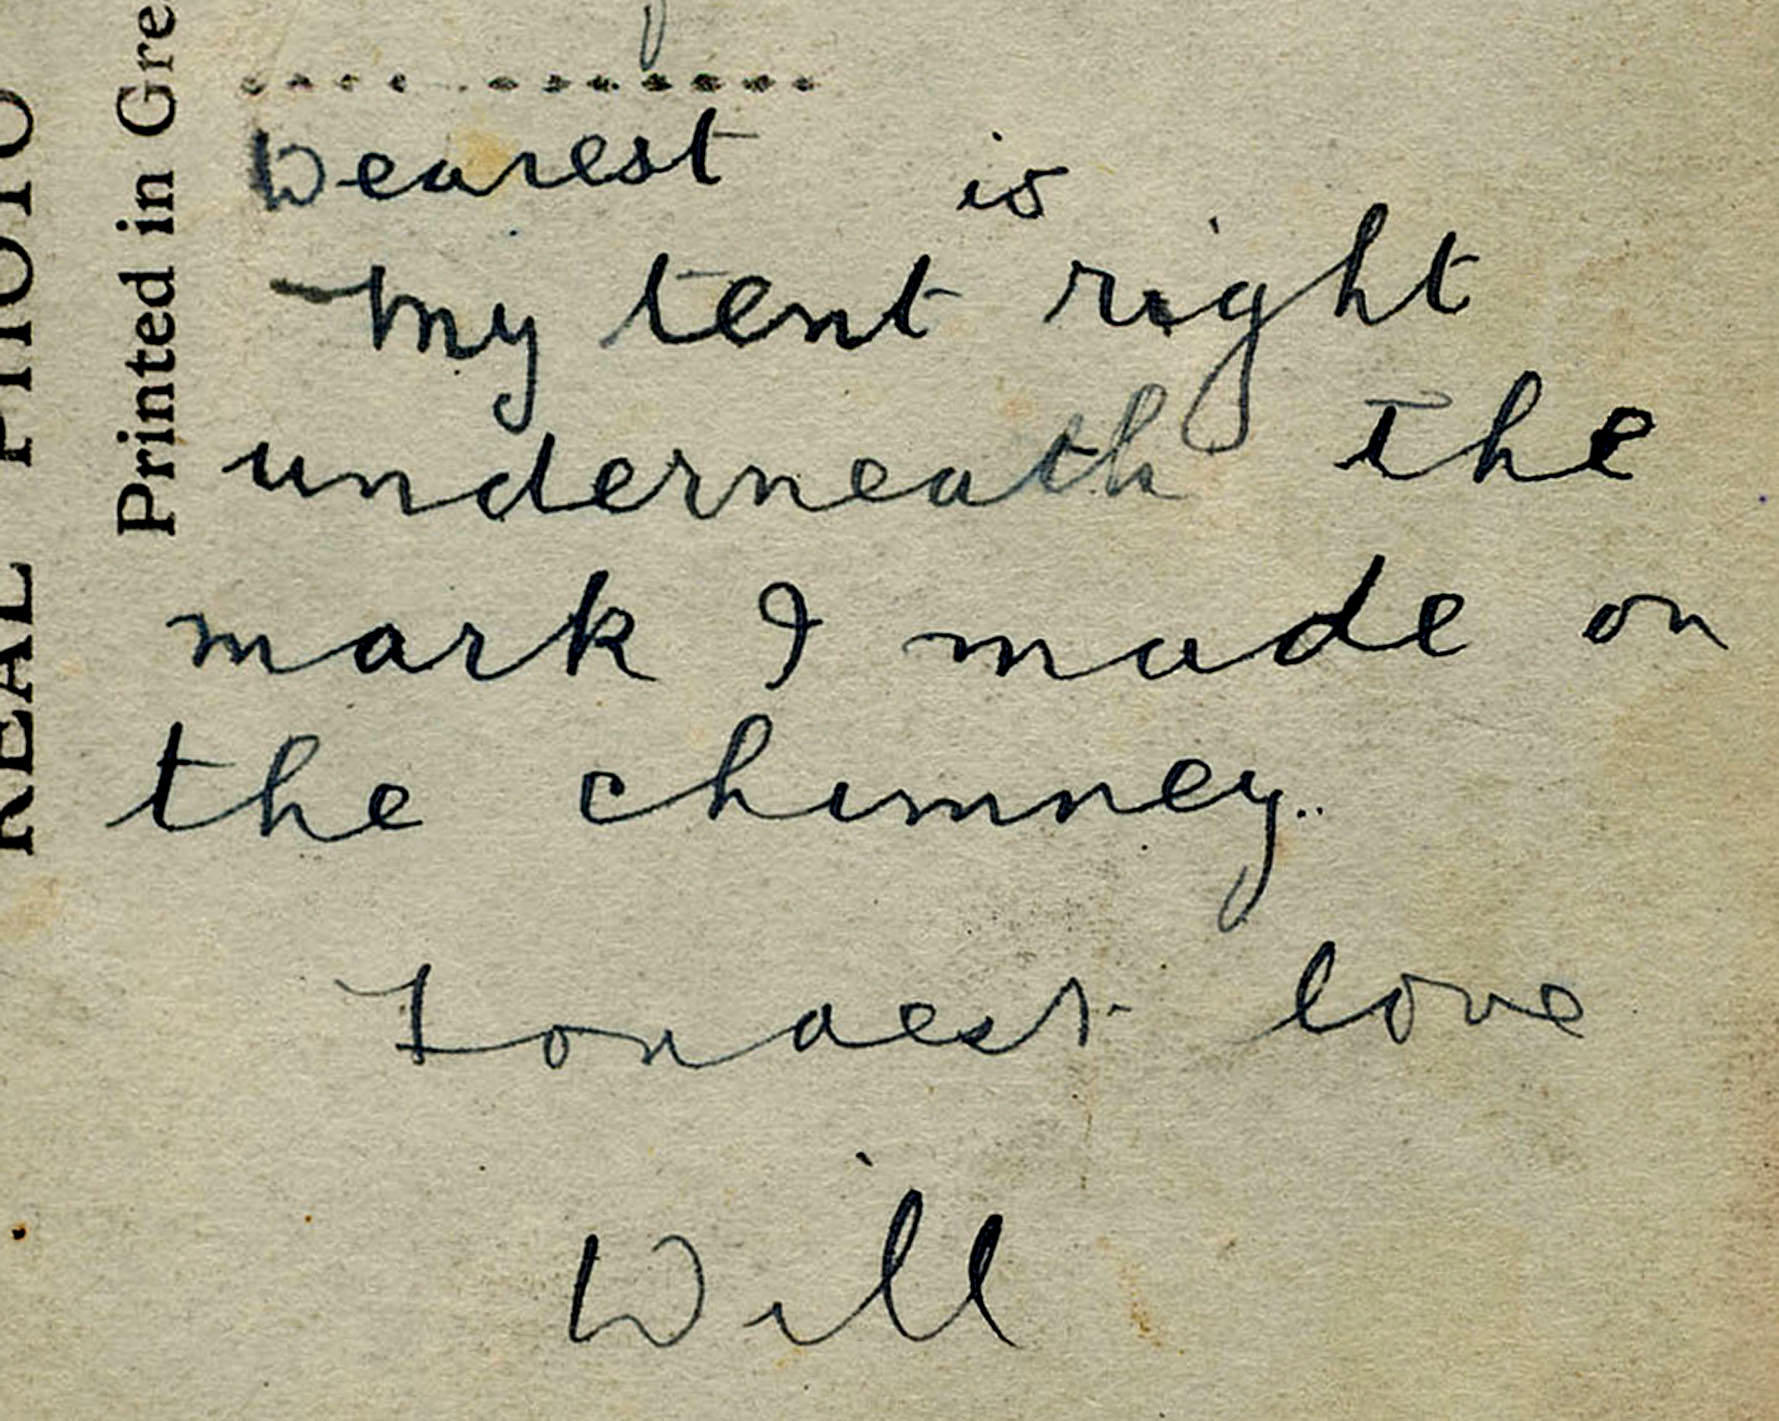 REAL PHOTO
Printed in Gre
Dearest
is
My tent right
underneath the
mark I made on
the chimney..
Fondest love
Will